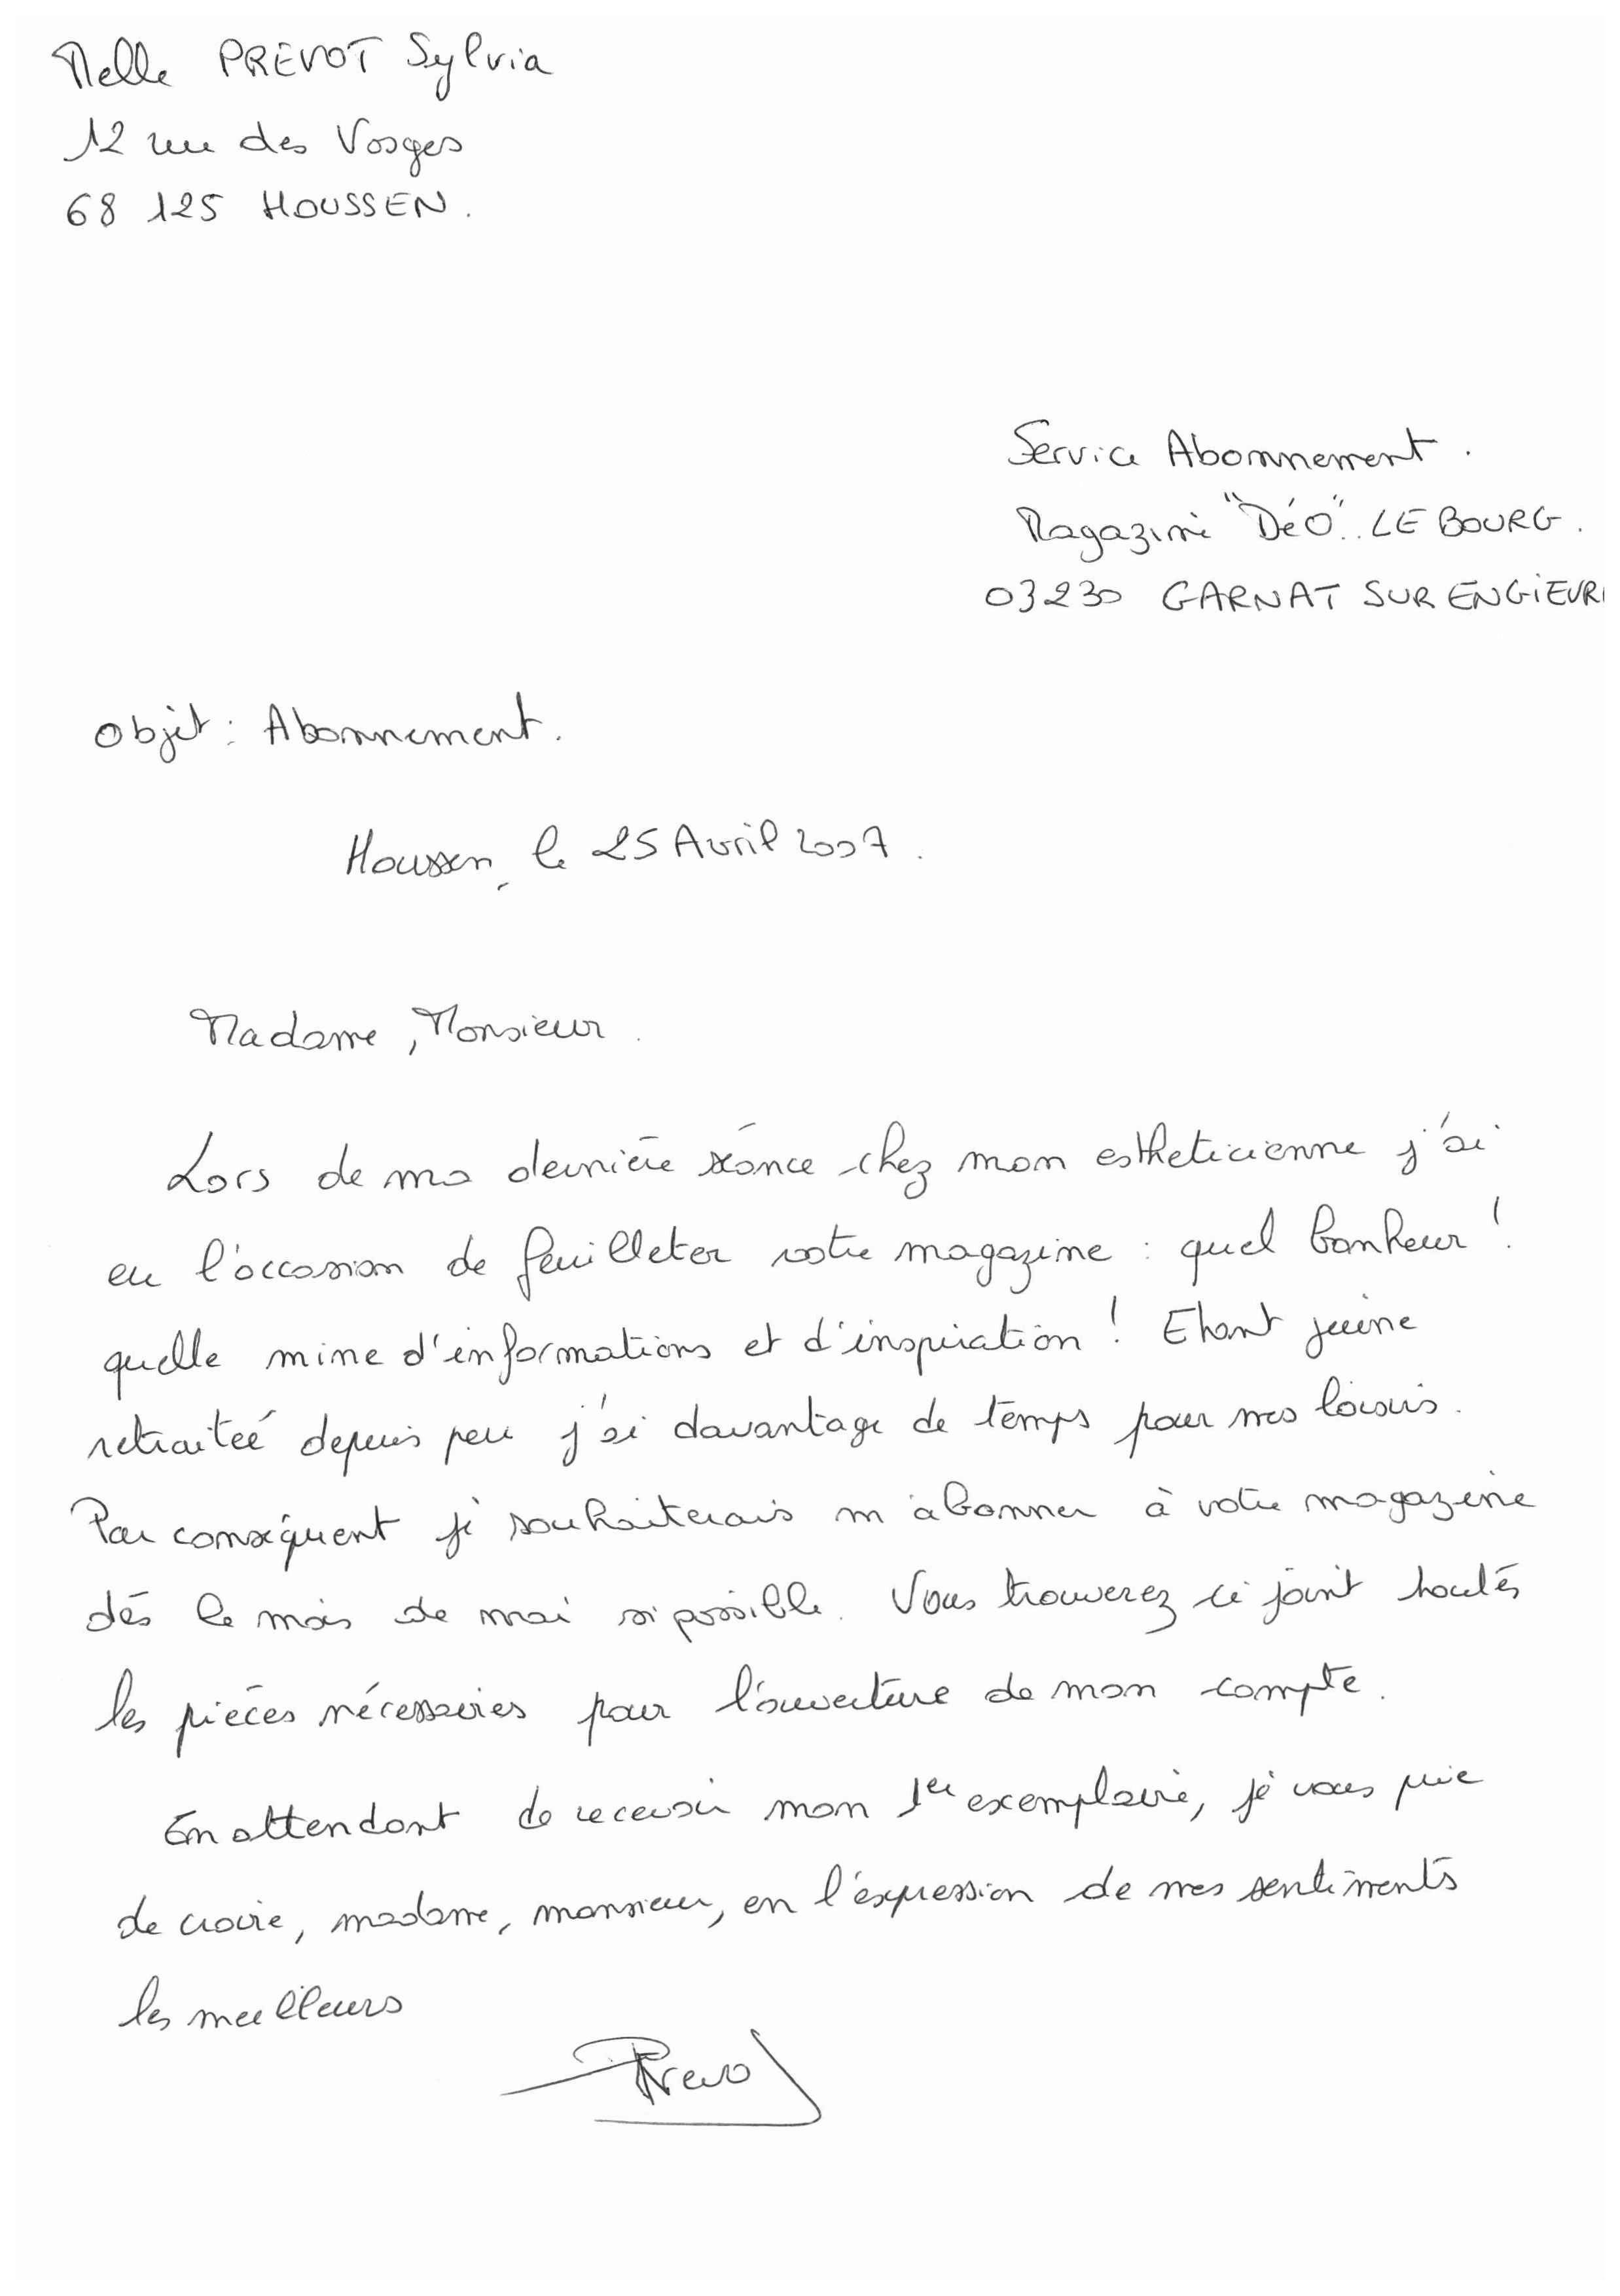 Melle PREVOT Sylvia
12 rue des Vosges
68 125 HOUSSEN.
Service Abonnement.
Magazine "Déo". LE BOURG.
03230 GARNAT SUR ENGIEVR
Objet : Abonnement.
Houssen, le 25 Avril 2007.
Madame, Monsieur.
Lors de ma dernière séance chez mon estheticienne j'ai
eu l'occasion de feuilleter votre magazine : quel bonheur !
quelle mine d'informations et d'inspiration ! Etant jeune
retraiteé depuis peu j'ai davantage de temps pour mes loisirs.
Par conséquent je souhaiterais m'abonner à votre magazine
dés le mois de mai si possible. Vous trouverez ci joint toutes
les pièces nécessaires pour l'ouverture de mon compte.
En attendant de recevoir mon 1er exemplaire, je vous prie
de croire, madame, monsieur, en l'expression de mes sentiments
les meilleurs
Prevot